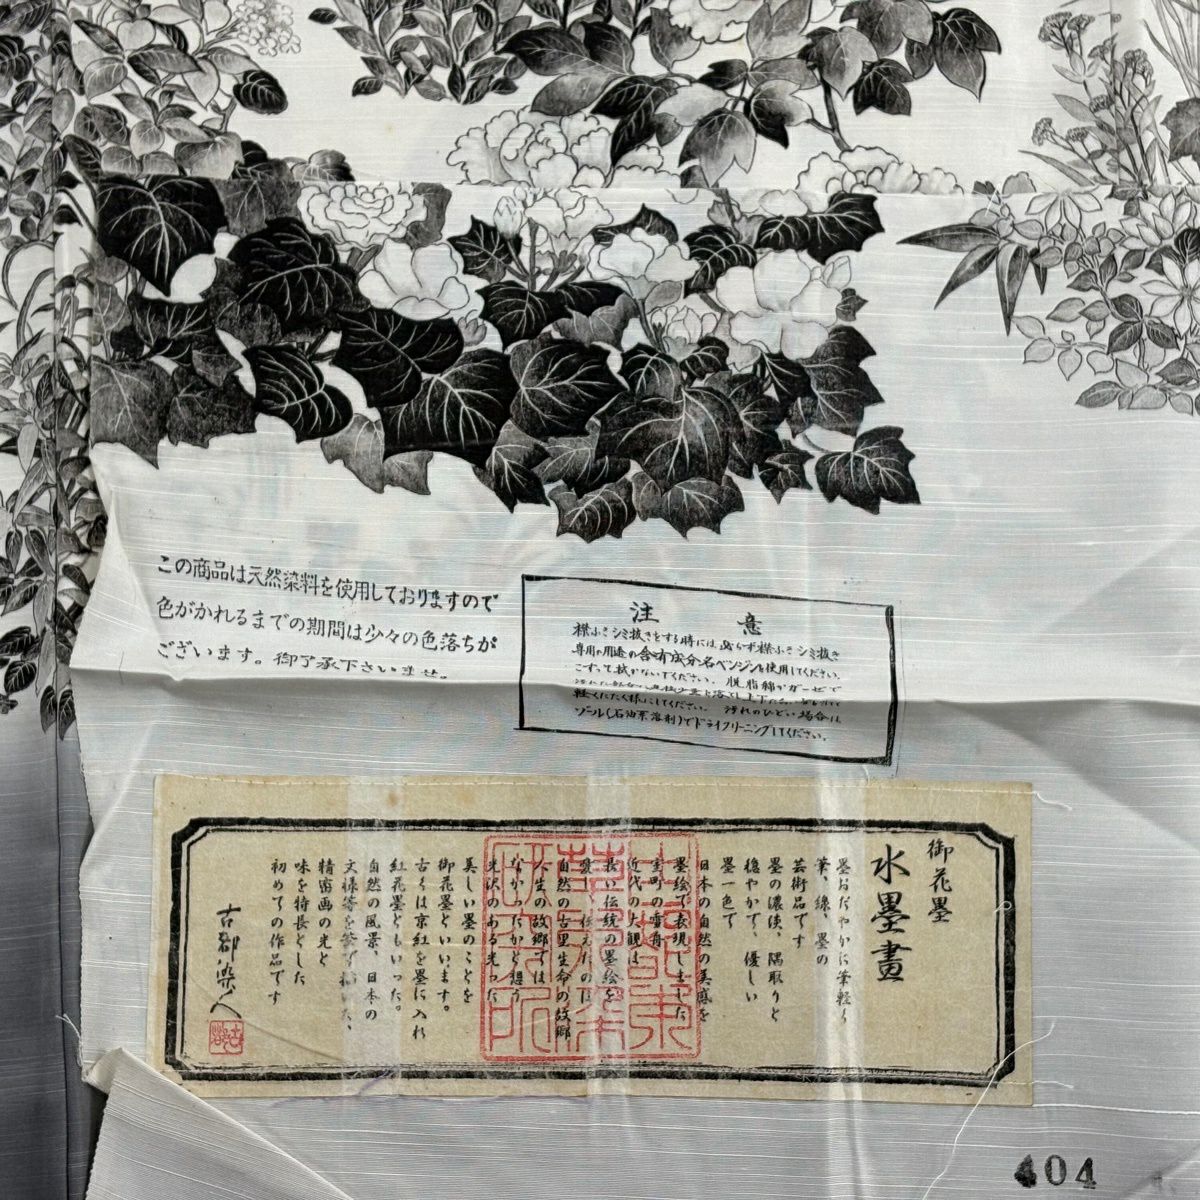 この商品は天然染料を使用しておりますので
色がかれるまでの期間は少々の色落ちが
ございます。御了承下さいませ。
注 意
襟ふきシミ抜きをする時には必らず襟ふきシミ抜き
専用の用途の含有成分名ベンジンを使用してください。
こすって拭かないでください。脱脂綿かガーゼで
軽くたたく様にしてください。汚れのひどい場合は
ゾール(石油系溶剤)でドライクリーニングしてください。
御花墨
水墨畫
墨おだやかに筆軽く
筆、線、墨の
芸術品です
墨の濃淡、隅取りと
穏やかで、優しい
墨一色で
日本の自然の美感を
墨絵で表現しました
室町の雪舟
近代の大観は
長い伝統の墨絵を
自然の古里生命の故郷
人生の故郷では
なかったかと想う
光沢のある光った
美しい墨のことを
御花墨といいます。
古くは京紅を墨に入れ
紅花墨ともいった。
自然の風景、日本の
文様等を筆で描いた、
精密画の光と
味を特長とした
初めての作品です
古都染人
404